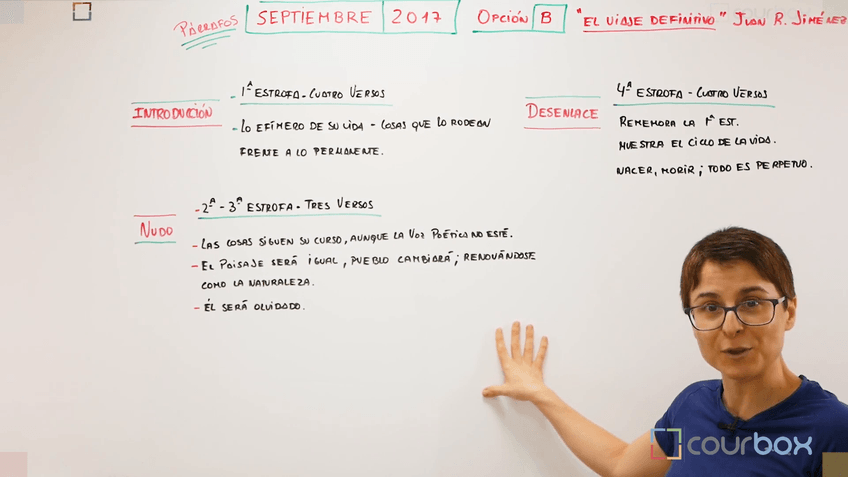 PÁRRAFOS SEPTIEMBRE 2017 OPCIÓN B "EL VIAJE DEFINITIVO" JUAN R. JIMÉNEZ
INTRODUCCIÓN
- 1ª ESTROFA - CUATRO VERSOS
- LO EFÍMERO DE SU VIDA - COSAS QUE LO RODEAN
FRENTE A LO PERMANENTE.
NUDO
- 2ª - 3ª ESTROFA - TRES VERSOS
- LAS COSAS SIGUEN SU CURSO, AUNQUE LA VOZ POÉTICA NO ESTÉ.
- EL PAISAJE SERÁ IGUAL, PUEBLO CAMBIARÁ; RENOVÁNDOSE
COMO LA NATURALEZA.
- ÉL SERÁ OLVIDADO.
DESENLACE
4ª ESTROFA - CUATRO VERSOS
REMEMORA LA 1ª EST.
MUESTRA EL CICLO DE LA VIDA.
NACER, MORIR; TODO ES PERPETUO.
courbox